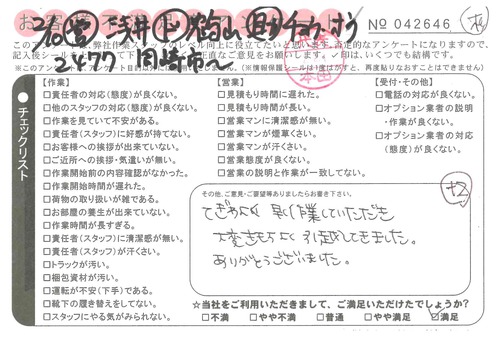 No 042646
このアンケートは、弊社作業スタッフのレベル向上に役立てたいと思います。否定的なアンケートになりますので、
記入後シールを
正直なご意見をお願いします。✓印は、いくつでも結構です。
2477 岡崎市
チェックリスト
【作業】
□責任者の対応(態度)が良くない。
□他のスタッフの対応(態度)が良くない。
□作業を見ていて不安がある。
□責任者(スタッフ)に好感が持てない。
□お客様への挨拶が出来ていない。
□ご近所への挨拶・気遣いが無い。
□作業開始前の内容確認がなかった。
□作業開始時間が遅れた。
□荷物の取り扱いが雑である。
□お部屋の養生が出来ていない。
□作業時間が長すぎる。
□責任者(スタッフ)に清潔感が無い。
□責任者(スタッフ)が汗くさい。
□トラックが汚い。
□梱包資材が汚い。
□運転が不安(下手)である。
□靴下の履き替えをしてない。
□スタッフにやる気がみられない。
【営業】
□見積もり時間に遅れた。
□見積もり時間が長い。
□営業マンに清潔感が無い。
□営業マンが煙草くさい。
□営業マンが汗くさい。
□営業態度が良くない。
□営業の説明と作業が一致してない。
【受付・その他】
□電話の対応が良くない。
□オプション業者の説明
・作業が良くない。
□オプション業者の対応
(態度)が良くない。
その他、ご意見・ご要望等ありましたらお書き下さい。
てぎわよく 早く作業していただき
大変きもちよく 引越しできました。
ありがとうございました。
☆当社をご利用いただきまして、ご満足いただけたでしょうか?
□不満 □やや不満 □普通 □やや満足 ☑満足